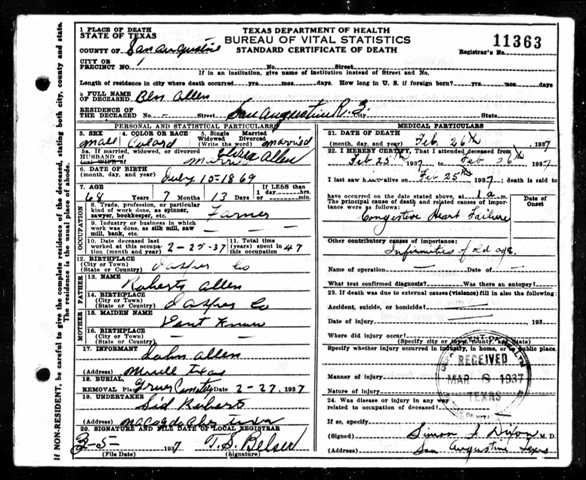 1 PLACE OF DEATH
STATE OF TEXAS
COUNTY OF San Augustine
CITY OR
PRECINCT NO. 1
TEXAS DEPARTMENT OF HEALTH
BUREAU OF VITAL STATISTICS
STANDARD CERTIFICATE OF DEATH
11363
Registrar's No.
No. Street
If in an institution, give name of institution instead of Street and Number.
Length of residence in city where death occurred yrs. mos. days. How long in U. S. if foreign born? yrs. mos. days
2 FULL NAME
OF DECEASED Ben Allen
RESIDENCE OF
THE DECEASED No. Street San Augustine R. 3.
PERSONAL AND STATISTICAL PARTICULARS
3. SEX 4. COLOR OR RACE 5. Single Married
Widowed Divorced
(Write the word)
male Colard married
5a. If married, widowed, or divorced
HUSBAND OF
Allen
6. DATE OF BIRTH
(month, day, and year) July 10-1869
7. AGE
7 Months 13 Days
If LESS than
1 day hrs.
or min.
OCCUPATION
8. Trade, profession, or particular
kind of work done, as spinner,
sawyer, bookkeeper, etc. Farmer
9. Industry or business in which
work was done, as silk mill, saw
mill, bank, etc.
10. Date deceased last
worked at this occupation
(month and year) 2-25-37
11. Total time
(years) spent in
this occupation 47
12. BIRTHPLACE
(City or Town)
(State or Country) Jasper Co
FATHER
13. NAME Roberts Allen
14. BIRTHPLACE
(City or Town)
(State or Country) Jasper Co
MOTHER
15. MAIDEN NAME Dont Know
16. BIRTHPLACE
(City or Town)
(State or Country)
17. INFORMANT John Allen
(Address) Texas
18. BURIAL,
REMOVAL 2-27, 1937
19. UNDERTAKER Sid Roberts
(Address) Texas
20. SIGNATURE AND FILE DATE OF LOCAL REGISTRAR
3-5- 1937 T. S. Belser
(Signature)
MEDICAL PARTICULARS
21. DATE OF DEATH
(month, day, and year) Feb 26th, 1937
22. I HEREBY CERTIFY, That I attended deceased from
Feb 25, 1937, to Feb 26th, 1937
I last saw h alive on Feb 25th 1937; death is said to
have occurred on the date stated above, at m.
The principal cause of death and related causes of importance were as follows:
Date of Onset
Congestive Heart Failure
Other contributory causes of importance:
Infirmities of Old age.
Name of operation Date of
What test confirmed diagnosis? Was there an autopsy?
23. If death was due to external causes (violence) fill in also the following
Accident, suicide, or homicide?
Date of injury 193
Where did injury occur?
(Specify city or town, county, and State)
Specify whether injury occurred in industry, in home, or in public place.
Manner of injury
Nature of injury
24. Was disease or injury in any way
related to occupation of deceased?
If so, specify
(Signed) Simon J. M. D.
(Address) San Augustine Texas
RECEIVED
MAR 8 1937
TEXAS